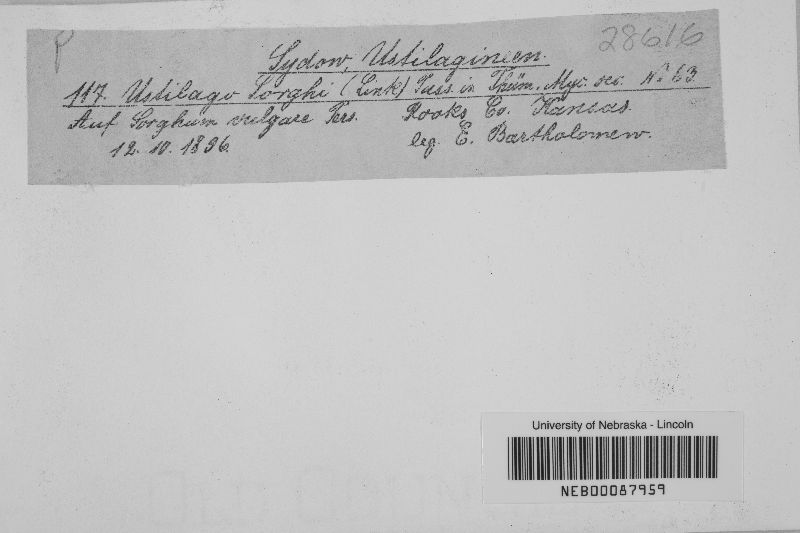 P
28616
Sydow, Ustilagineen.
117. Ustilago Sorghi (Link) Pass. in Thüm. Myc. sec. No 63.
Auf Sorghum vulgare Pers. Rooks Co. Kansas.
12. 10. 1896. leg. E. Bartholomew.
University of Nebraska - Lincoln
NEB00087959